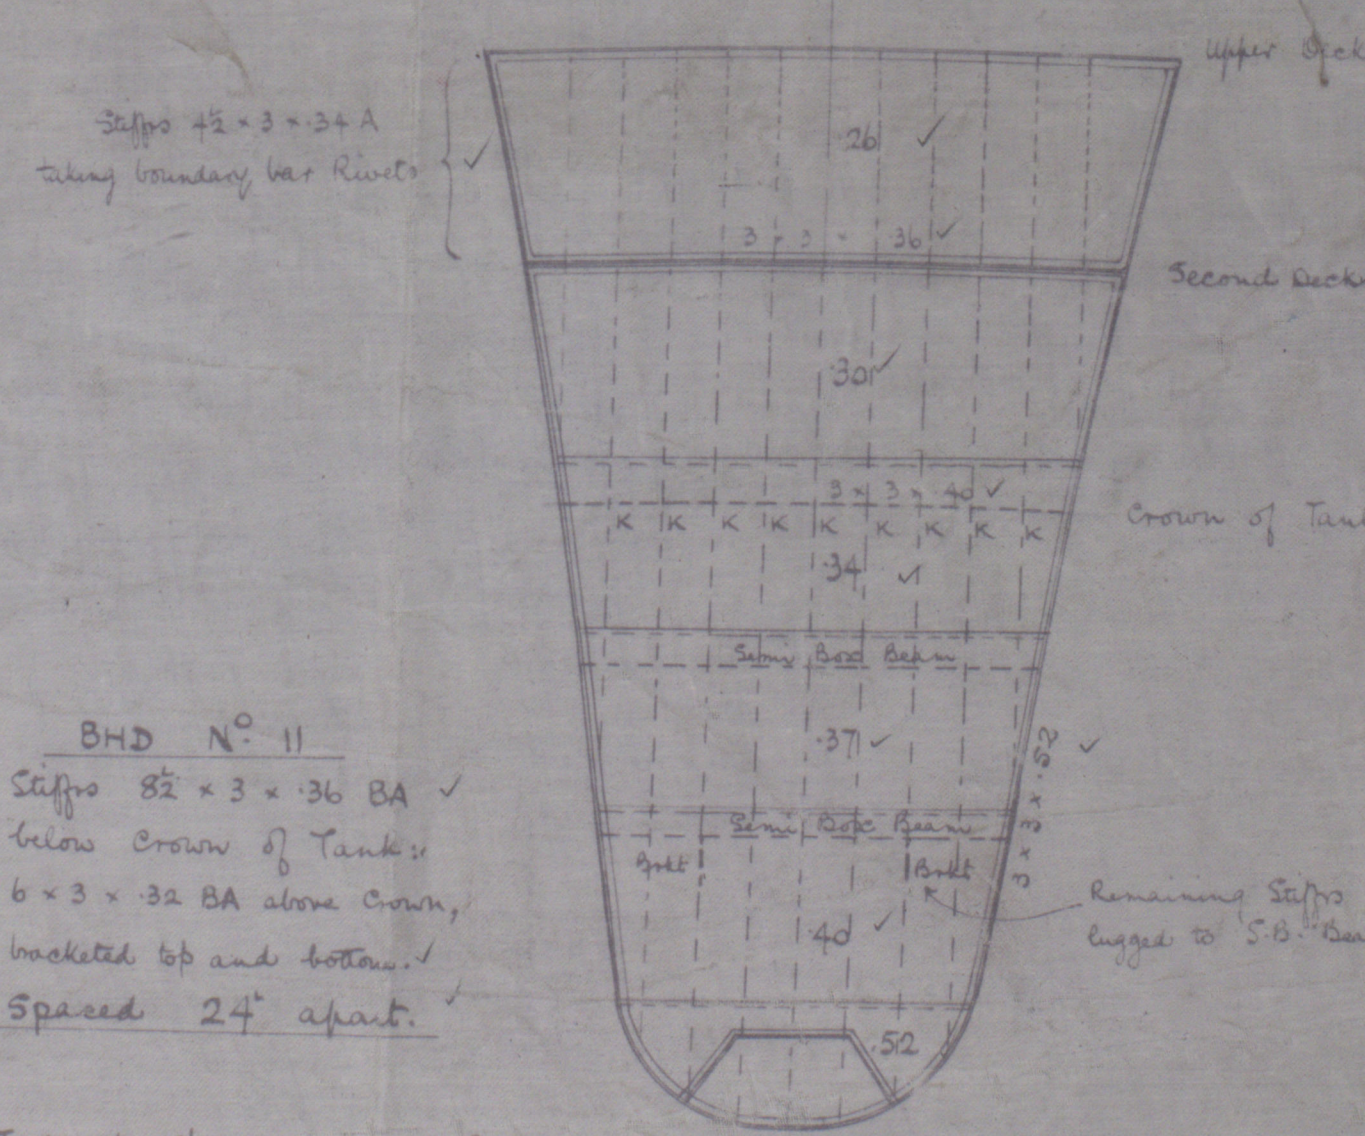 Upper Deck
Stiffrs 4½ × 3 × .34 A
taking boundary bar Rivets
.26 ✓
3 × 3 × .36 ✓
Second Deck
.30 ✓
3 × 3 × .40 ✓
K K K K K K K K K
Crown of Tank
.34 ✓
Semi Box Beam
.37 ✓
3 × 3 × .52 ✓
Semi Box Beam
Brkt Brkt
Remaining Stiffrs
lugged to S.B. Bea
.40 ✓
.52
BHD No. 11
Stiffrs 8½ × 3 × .36 BA ✓
below Crown of Tank:
6 × 3 × .32 BA above Crown,
bracketed top and bottom. ✓
Spaced 24" apart. ✓